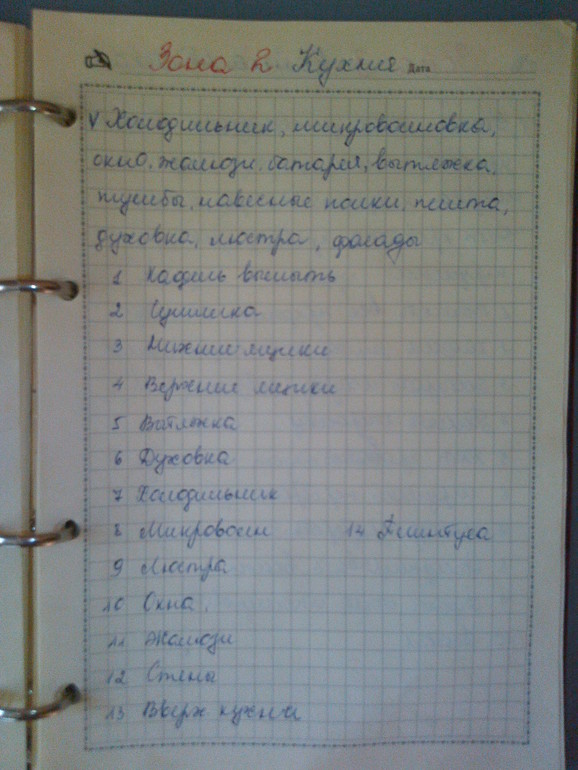 Зона 2 Кухня Дата
V Холодильник, микроволновка,
окно, жалюзи, батарея, вытяжка,
тумбы, навесные полки, плита,
духовка, люстра, фасады
1 Кафель вымыть
2 Сушилка
3 Нижние ящики
4 Верхние ящики
5 Вытяжка
6 Духовка
7 Холодильник
8 Микроволн 14 Плинтуса
9 Люстра
10 Окна
11 Жалюзи
12 Стены
13 Вверх кухни